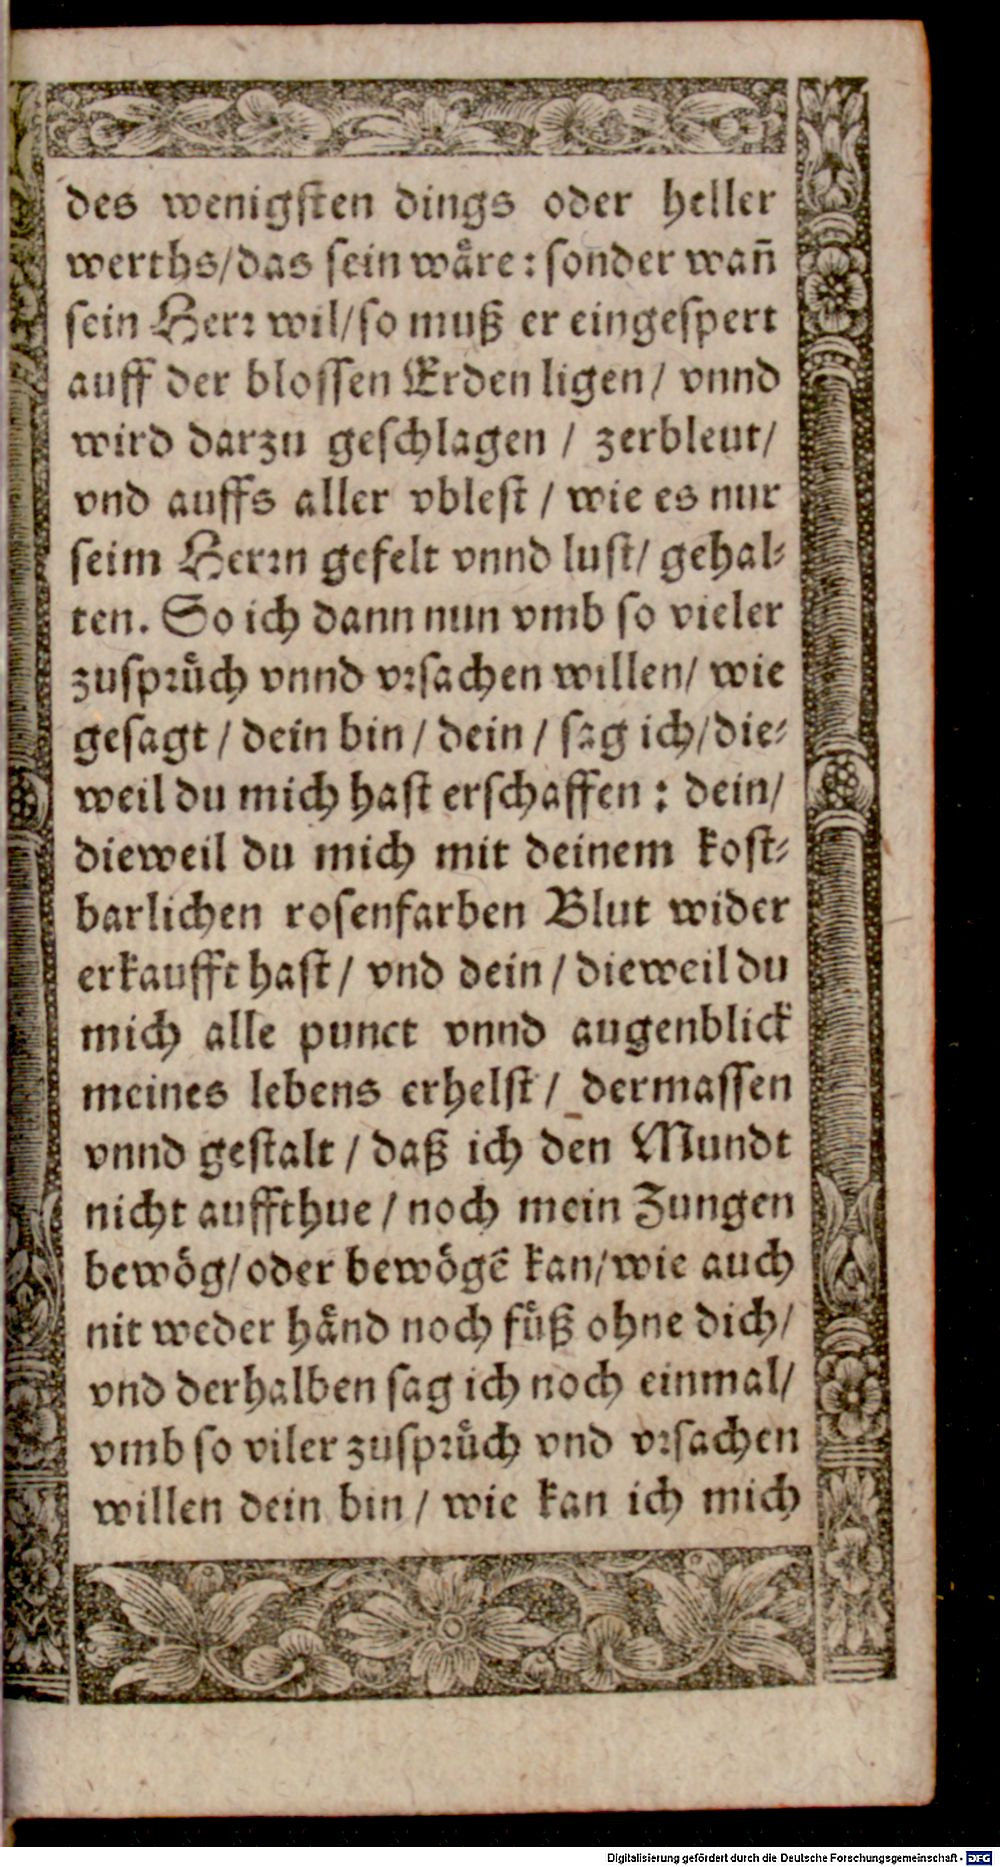 des wenigsten dings oder heller
werths/das sein wåre: sonder wañ
sein Herꝛ wil/so muß er eingespert
auff der blossen Erden ligen/ vnnd
wird darzu geschlagen / zerbleut/
vnd auffs aller vblest / wie es nur
seim Herꝛn gefelt vnnd lust/ gehal⸗
ten. So ich dann nun vmb so vieler
zuspꝛůch vnnd vꝛsachen willen/ wie
gesagt / dein bin / dein / sag ich/die⸗
weil du mich hast erschaffen : dein/
dieweil du mich mit deinem kost⸗
barlichen rosenfarben Blut wider
erkaufft hast / vnd dein / dieweil du
mich alle punct vnnd augenblick
meines lebens erhelst / dermassen
vnnd gestalt / daß ich den Mundt
nicht auffthue / noch mein Zungen
bewoͤg/oder bewoͤgẽ kan/wie auch
nit weder haͤnd noch fuͤß ohne dich/
vnd derhalben sag ich noch einmal/
vmb so viler zuspꝛuͤch vnd vꝛsachen
willen dein bin / wie kan ich mich
Digitalisierung gefördert durch die Deutsche Forschungsgemeinschaft - DFG